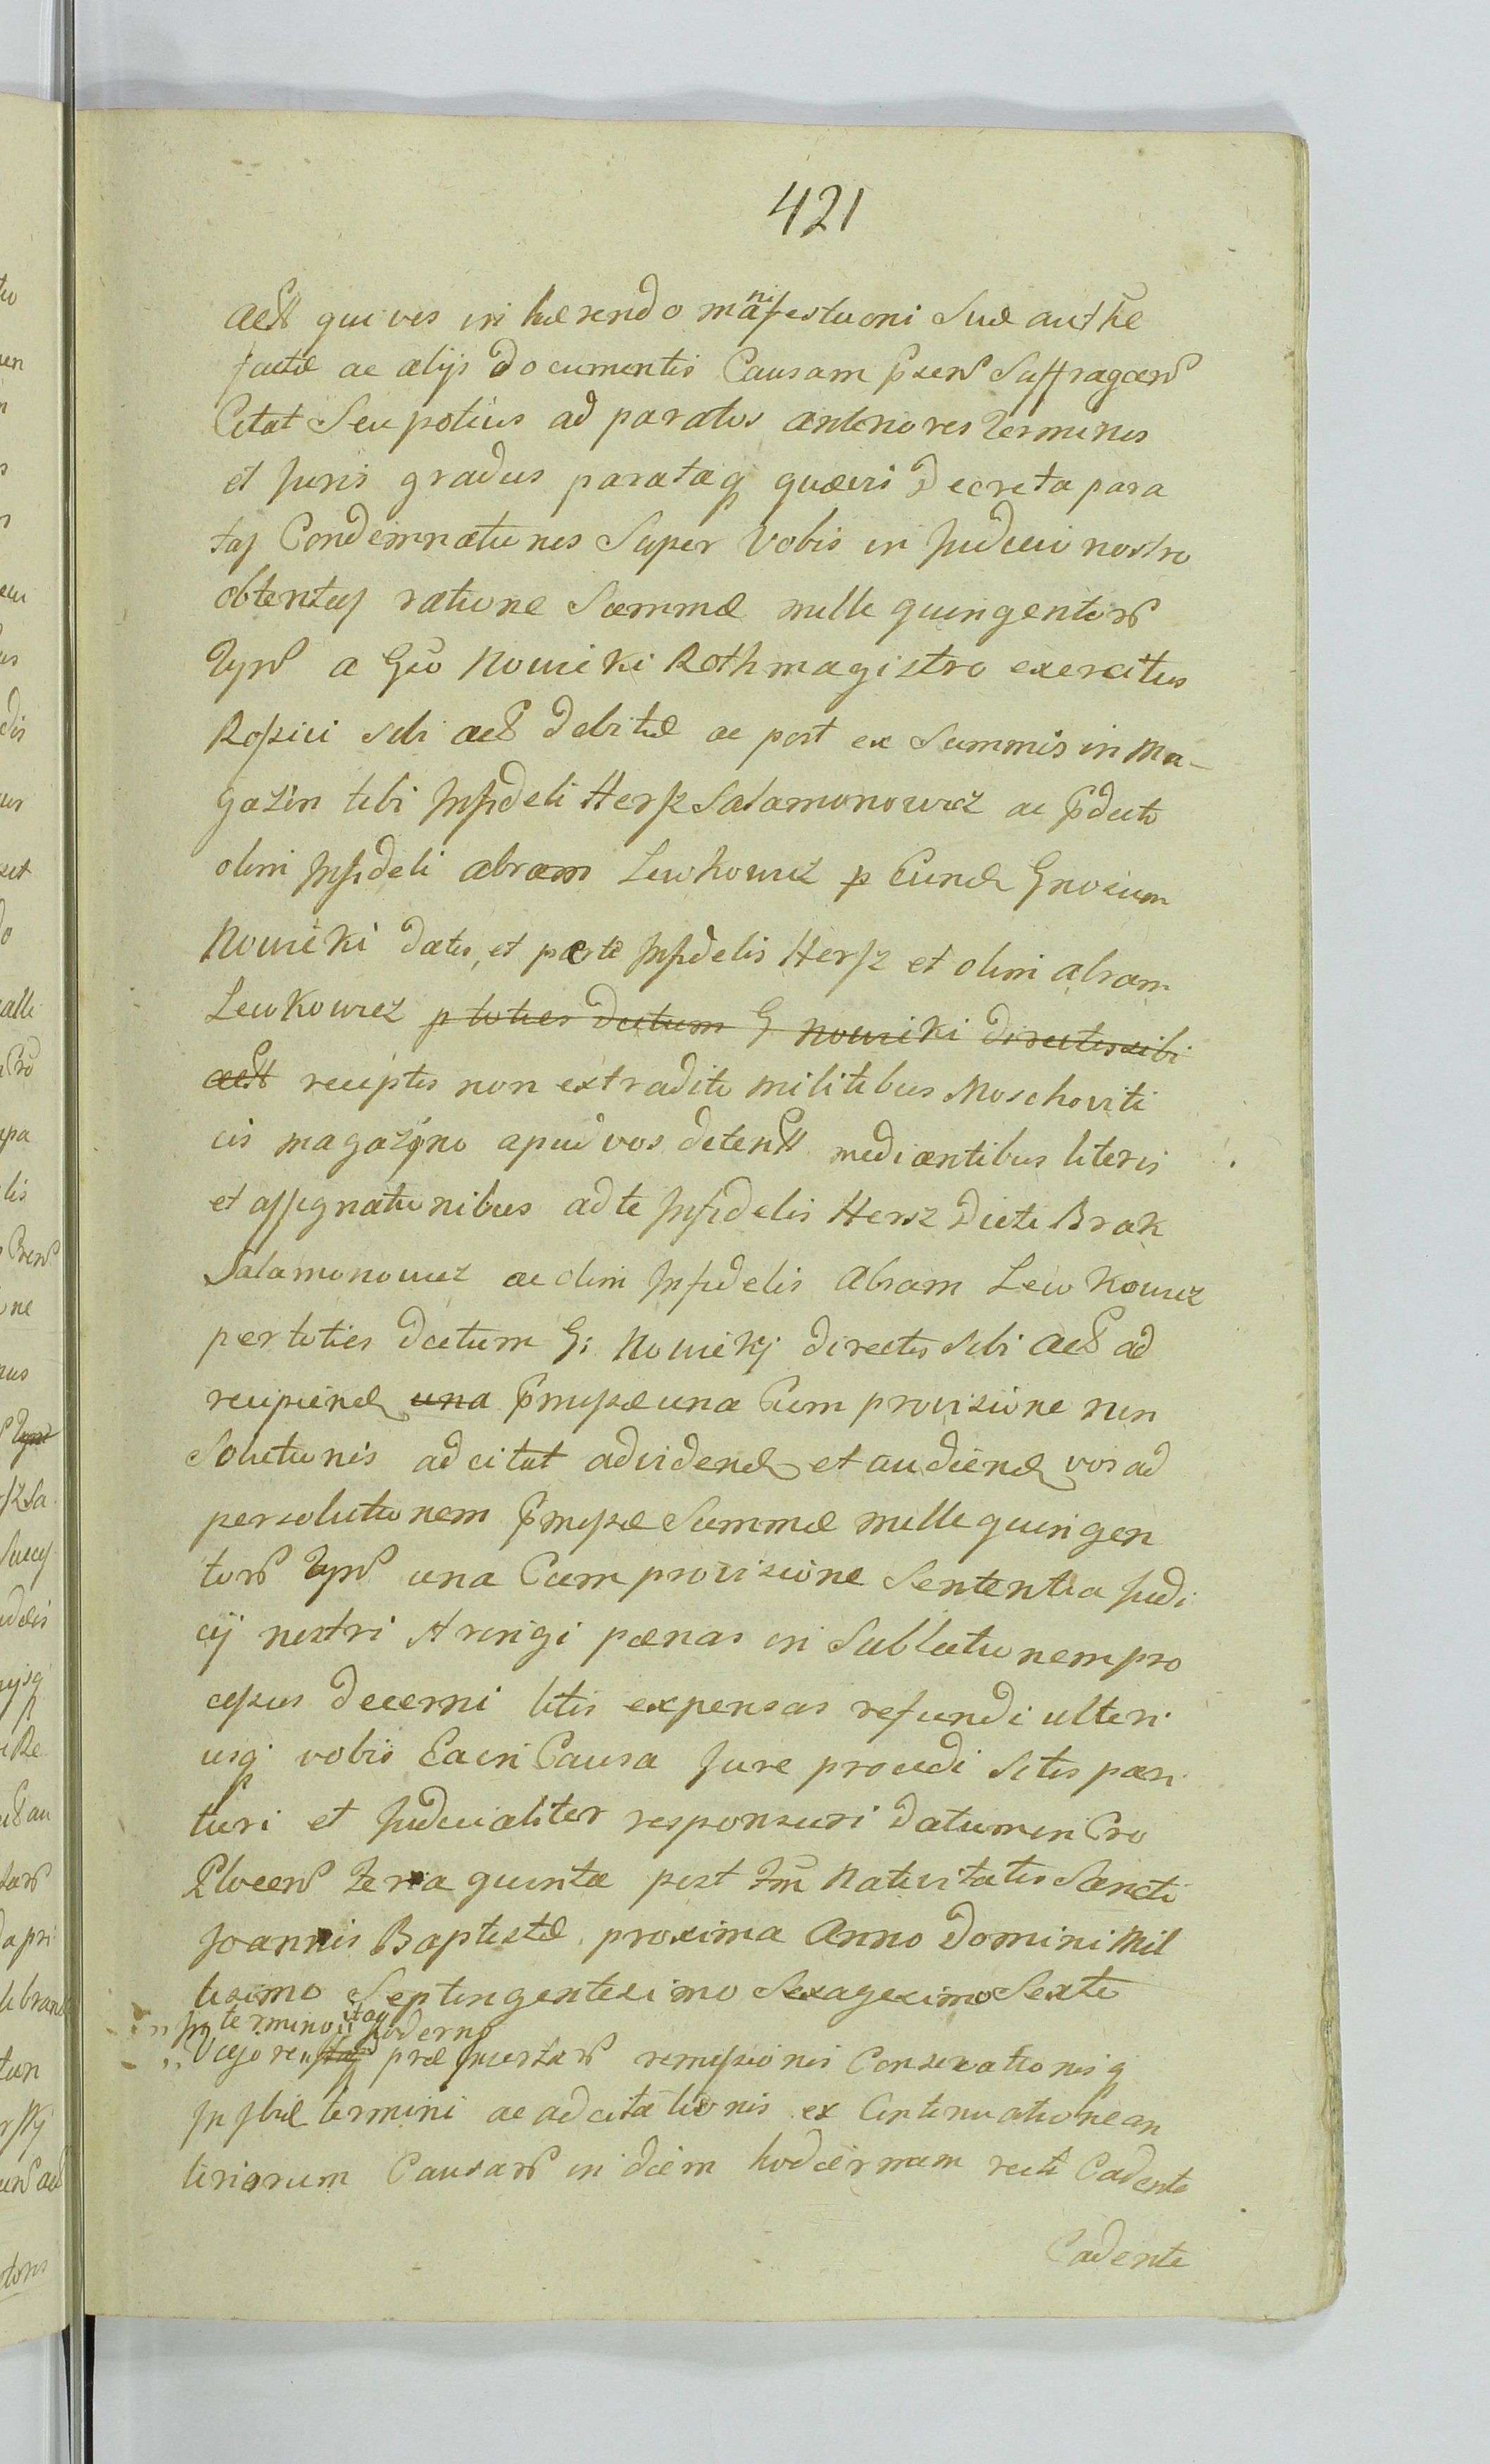 421
qui vos in hærendo manifestationi suæ authe
factæ ac alijs documentis Causam
Citat Seu potius ad paratos anteriores Terminos
et Juris gradus parataq quævis Decreta para
tas Condemnationes Super Vobis in Judicio nostro
obtentas ratione Summæ mille quingentor
a Nowicki Rothmagistro exercitus
Rossici sibi debitæ ac post ex Summis in Ma-
gazin tibi Infideli Hersz Salamonowicz ac pdicto
olim Infideli Abram Lewkowicz p Eund Gnosum
Nowicki datis, et parte Infidelis Hersz et olim Abram
Lewkowicz p toties dictum G Nowicki directis sibi
receptis non extradito militibus Moschoviti
cis magazyno apud vos detent mediantibus literis
et assignationibus ad te Infidelis Hersz Dicte Brak
Salamonowicz ac olim Infidelis Abram Lewkowicz
per toties dictum G: Nowickj directis sibi ad
recipiend una pmissæ una Cum provisione non
Solutionis adcitat ad vidend et audiend vos ad
persolutionem pmissæ Summæ mille quingen
tor una Cum provisione Sententia Judi
cij nostri stringi pænas in Sublationem pro
cessus decerni litis expensas refundi ulteri
usq vobis Ea in Causa Jure procedi Sitis pari
turi et Judicialiter responsuri Datum in Cro
Plocen Feria quinta post Fm Nativitatis Sancti
Joannis Baptistæ proxima Anno Domini Mil
lesimo Septingentesimo Sexagesimo Sexto
termino hoderno
præ remissionis Conservationis q
termini ac adcitationis ex Continuatione an
teriorum Causar in diem hodiernam recte Cadente
Cadente